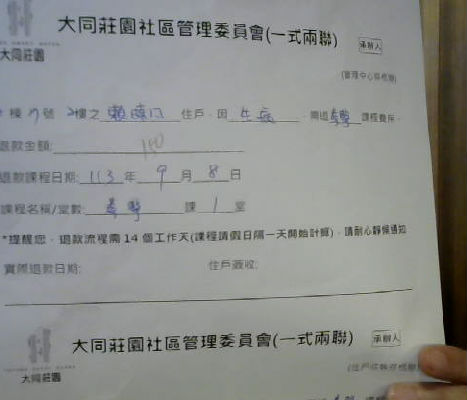 大同莊園社區管理委員會(一式兩聯)
承辦人
大同莊園
(管理中心存根聯)
棟 號 樓之 住戶，因 生病 ，需退 課程費用。
退款金額: 150
退款課程日期: 113 年 9 月 8 日
課程名稱/堂數: 課 1 堂
*提醒您，退款流程需14個工作天(課程請假日隔一天開始計算)，請耐心靜候通知
實際退款日期: 住戶簽收:
大同莊園社區管理委員會(一式兩聯)
承辦人
大同莊園